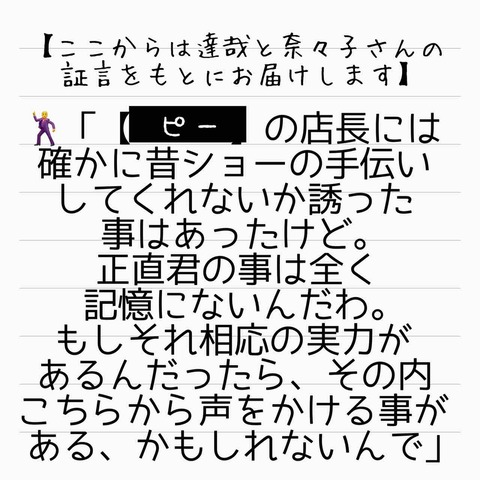 【ここからは達哉と奈々子さんの
証言をもとにお届けします】
「【ピー】の店長には
確かに昔ショーの手伝い
してくれないか誘った
事はあったけど。
正直君の事は全く
記憶にないんだわ。
もしそれ相応の実力が
あるんだったら、その内
こちらから声をかける事が
ある、かもしれないんで」